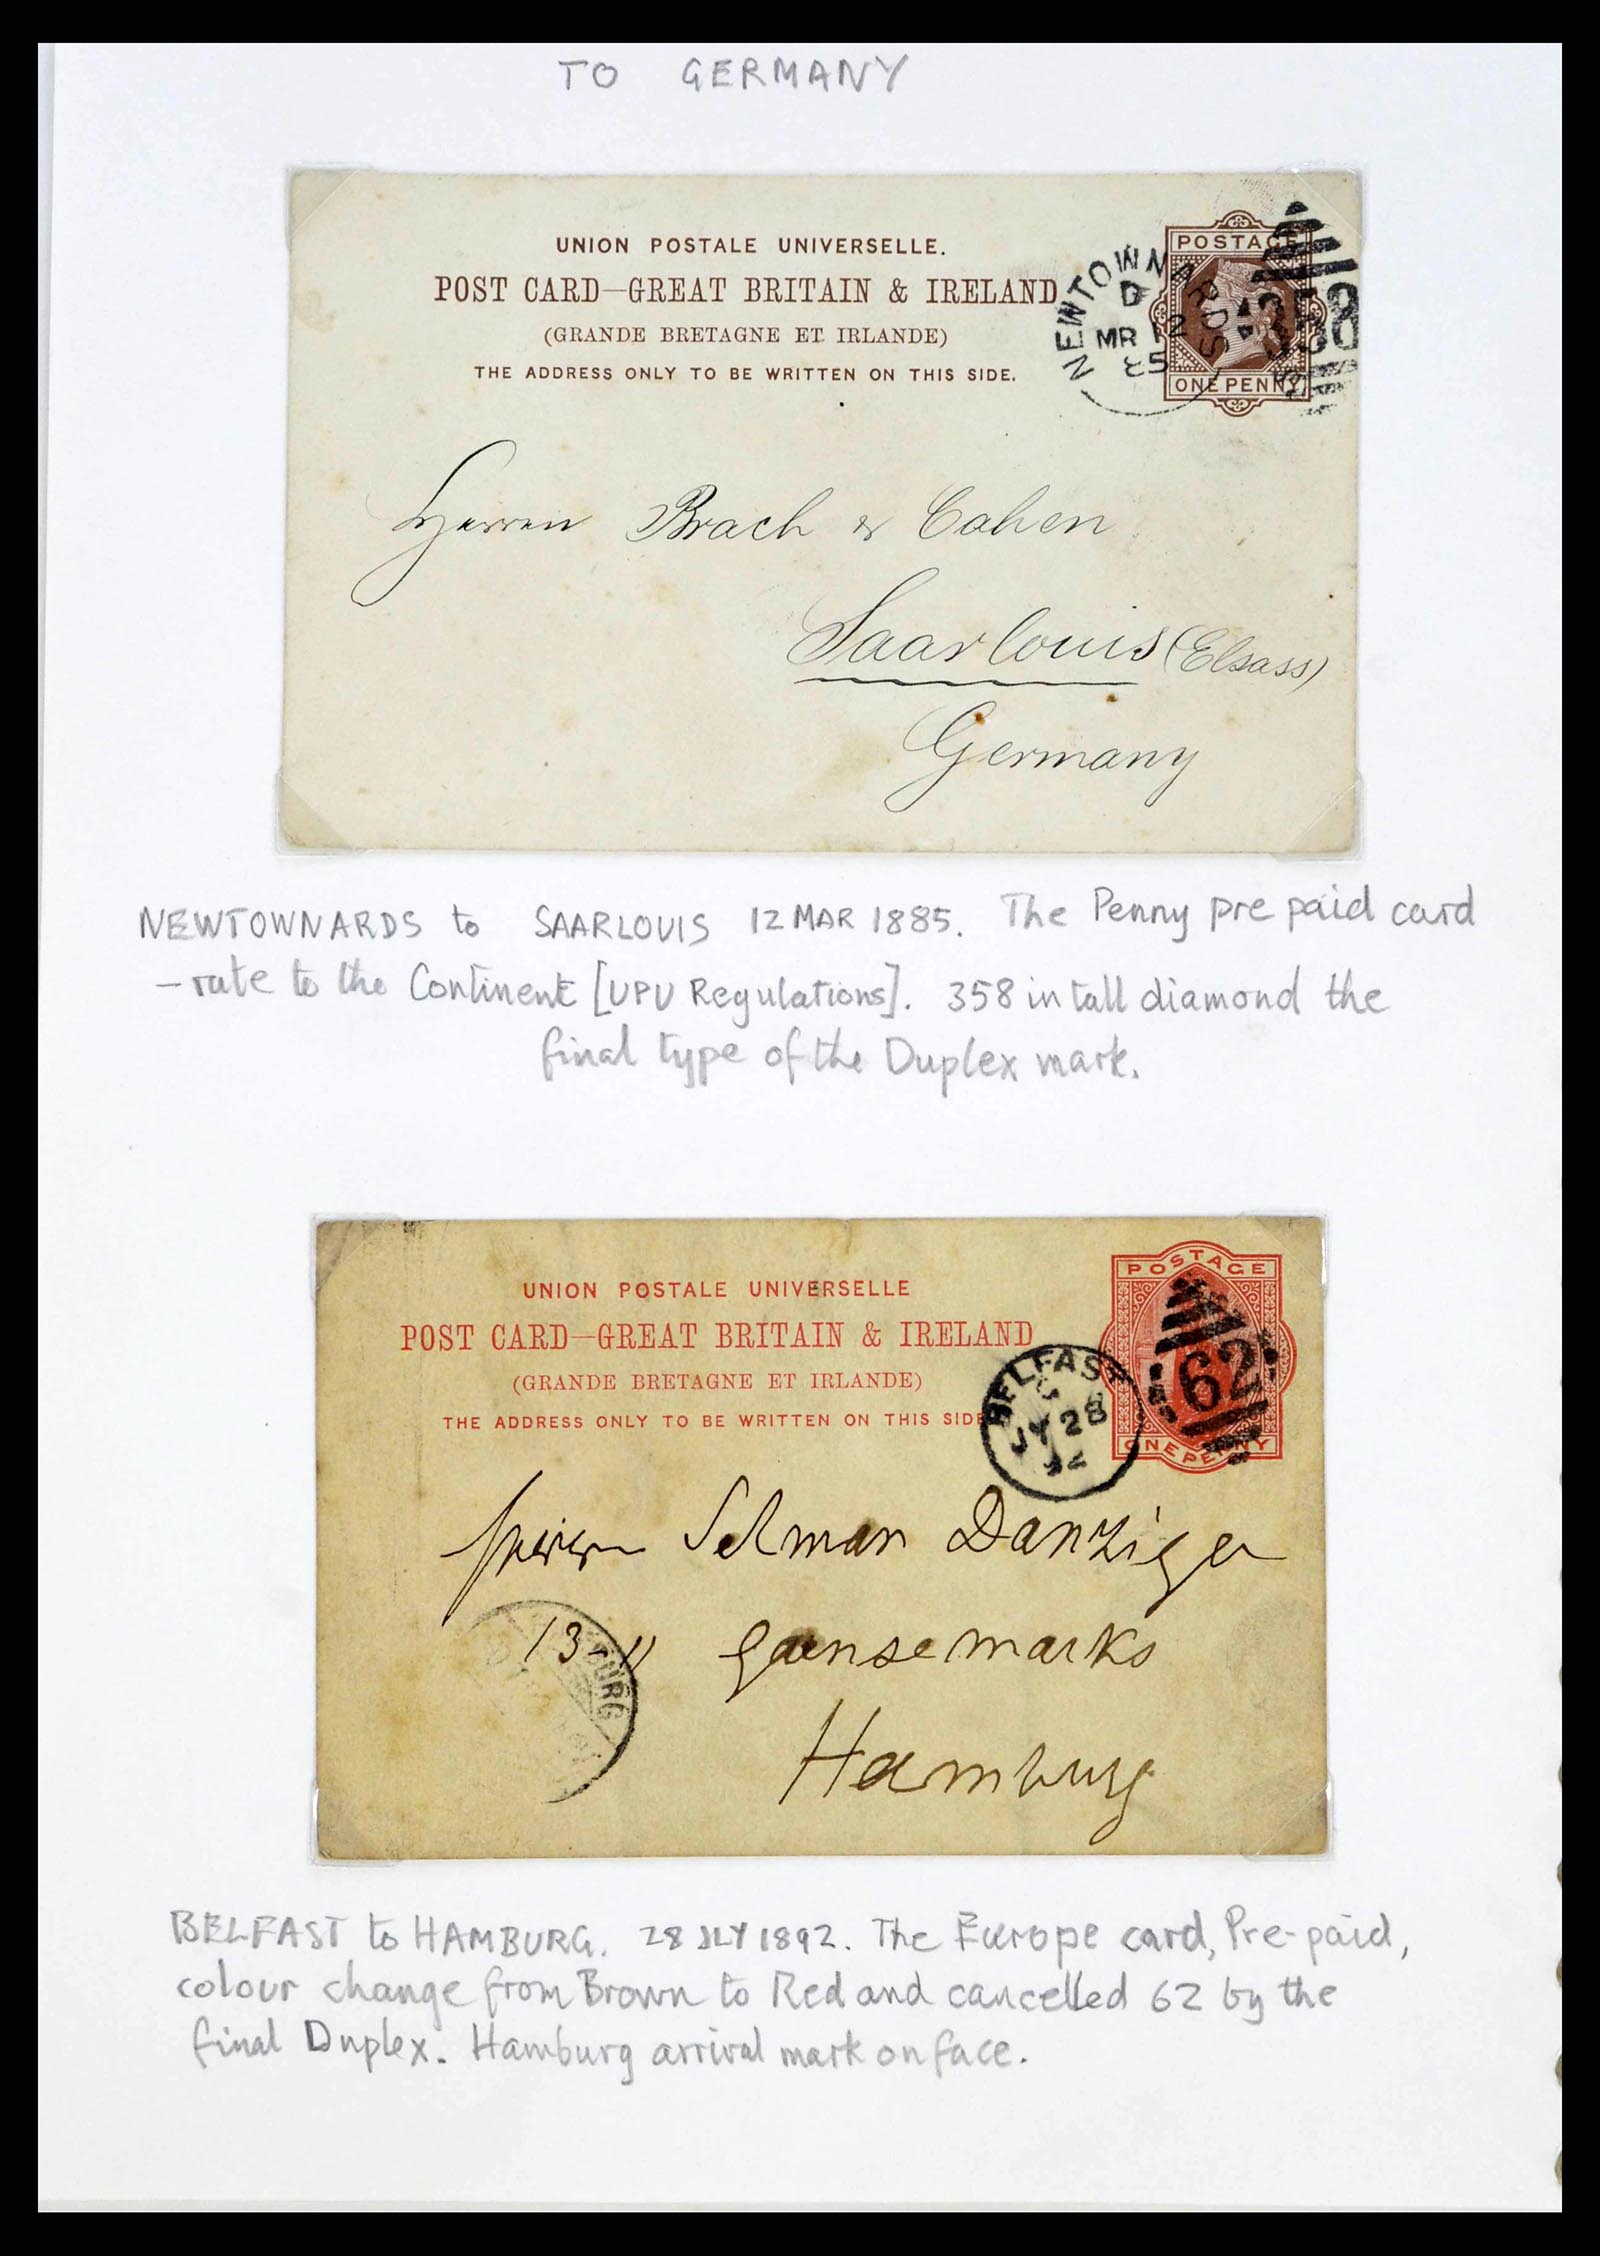 TO GERMANY
UNION POSTALE UNIVERSELLE.
POST CARD—GREAT BRITAIN & IRELAND
(GRANDE BRETAGNE ET IRLANDE)
THE ADDRESS ONLY TO BE WRITTEN ON THIS SIDE.
POSTAGE
ONE PENNY
NEWTOWNARDS
D
MR 12
85
358
Herren Brach & Cahen
Saarlouis (Elsass)
Germany
NEWTOWNARDS to SAARLOUIS 12 MAR 1885. The Penny pre paid card
– rate to the Continent [UPU Regulations]. 358 in tall diamond the
final type of the Duplex mark.
UNION POSTALE UNIVERSELLE
POST CARD—GREAT BRITAIN & IRELAND
(GRANDE BRETAGNE ET IRLANDE)
THE ADDRESS ONLY TO BE WRITTEN ON THIS SIDE
POSTAGE
ONE PENNY
BELFAST
JY 28
92
62
Herrn Selmar Danziger
13 Gänsemarkt
Hamburg
BELFAST to HAMBURG. 28 JLY 1892. The Europe card, Pre-paid,
colour change from Brown to Red and cancelled 62 by the
final Duplex. Hamburg arrival mark on face.